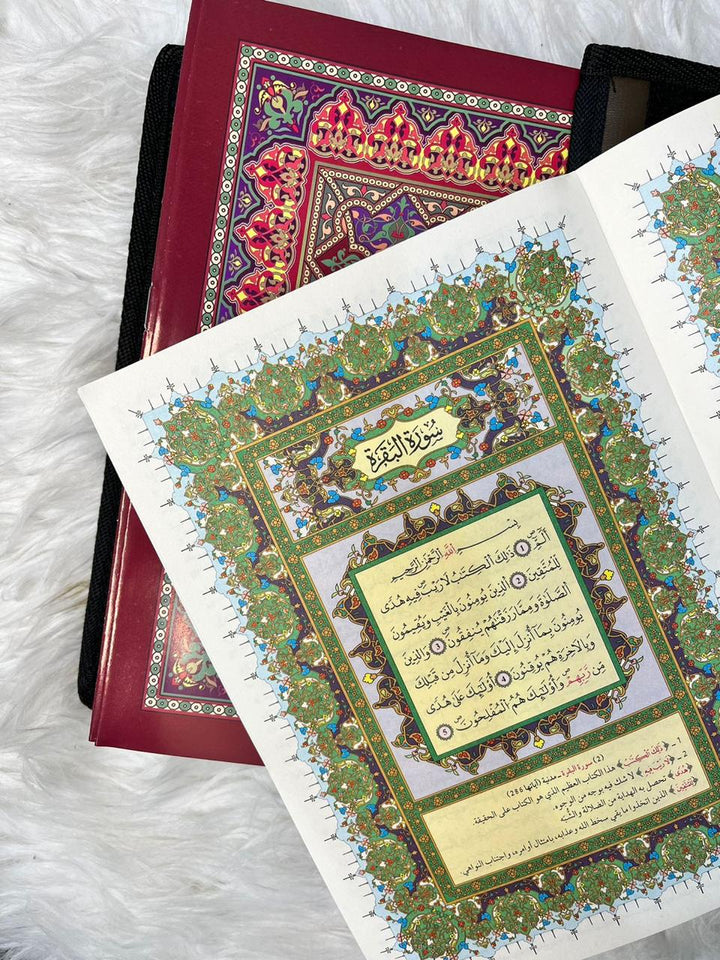 سُورَةُ البَقَرَةِ
بِسْمِ اللَّهِ الرَّحْمَٰنِ الرَّحِيمِ
الٓمٓ ۝١ ذَٰلِكَ ٱلْكِتَٰبُ لَا رَيْبَ فِيهِ هُدًى
لِّلْمُتَّقِينَ ۝٢ ٱلَّذِينَ يُؤْمِنُونَ بِٱلْغَيْبِ وَيُقِيمُونَ
ٱلصَّلَوٰةَ وَمِمَّا رَزَقْنَٰهُمْ يُنفِقُونَ ۝٣ وَٱلَّذِينَ
يُؤْمِنُونَ بِمَآ أُنزِلَ إِلَيْكَ وَمَآ أُنزِلَ مِن قَبْلِكَ
وَبِٱلْأَخِرَةِ هُمْ يُوقِنُونَ ۝٤ أُو۟لَٰٓئِكَ عَلَىٰ هُدًى
مِّن رَّبِّهِمْ وَأُو۟لَٰٓئِكَ هُمُ ٱلْمُفْلِحُونَ ۝٥
(2) سورة البقرة ـ مدنية (آياتها 286)
1 ـ ﴿ذَٰلِكَ ٱلْكِتَٰبُ﴾ هذا الكتاب العظيم الذي هو الكتاب على الحقيقة.
2 ـ ﴿لَا رَيْبَ فِيهِ﴾ لا شك فيه بوجه من الوجوه
﴿هُدًى﴾ تحصل به الهداية من الضلالة والشبه
﴿لِّلْمُتَّقِينَ﴾ الذين اتخذوا ما يقي سخط الله وعذابه، بامتثال أوامره، واجتناب النواهي.